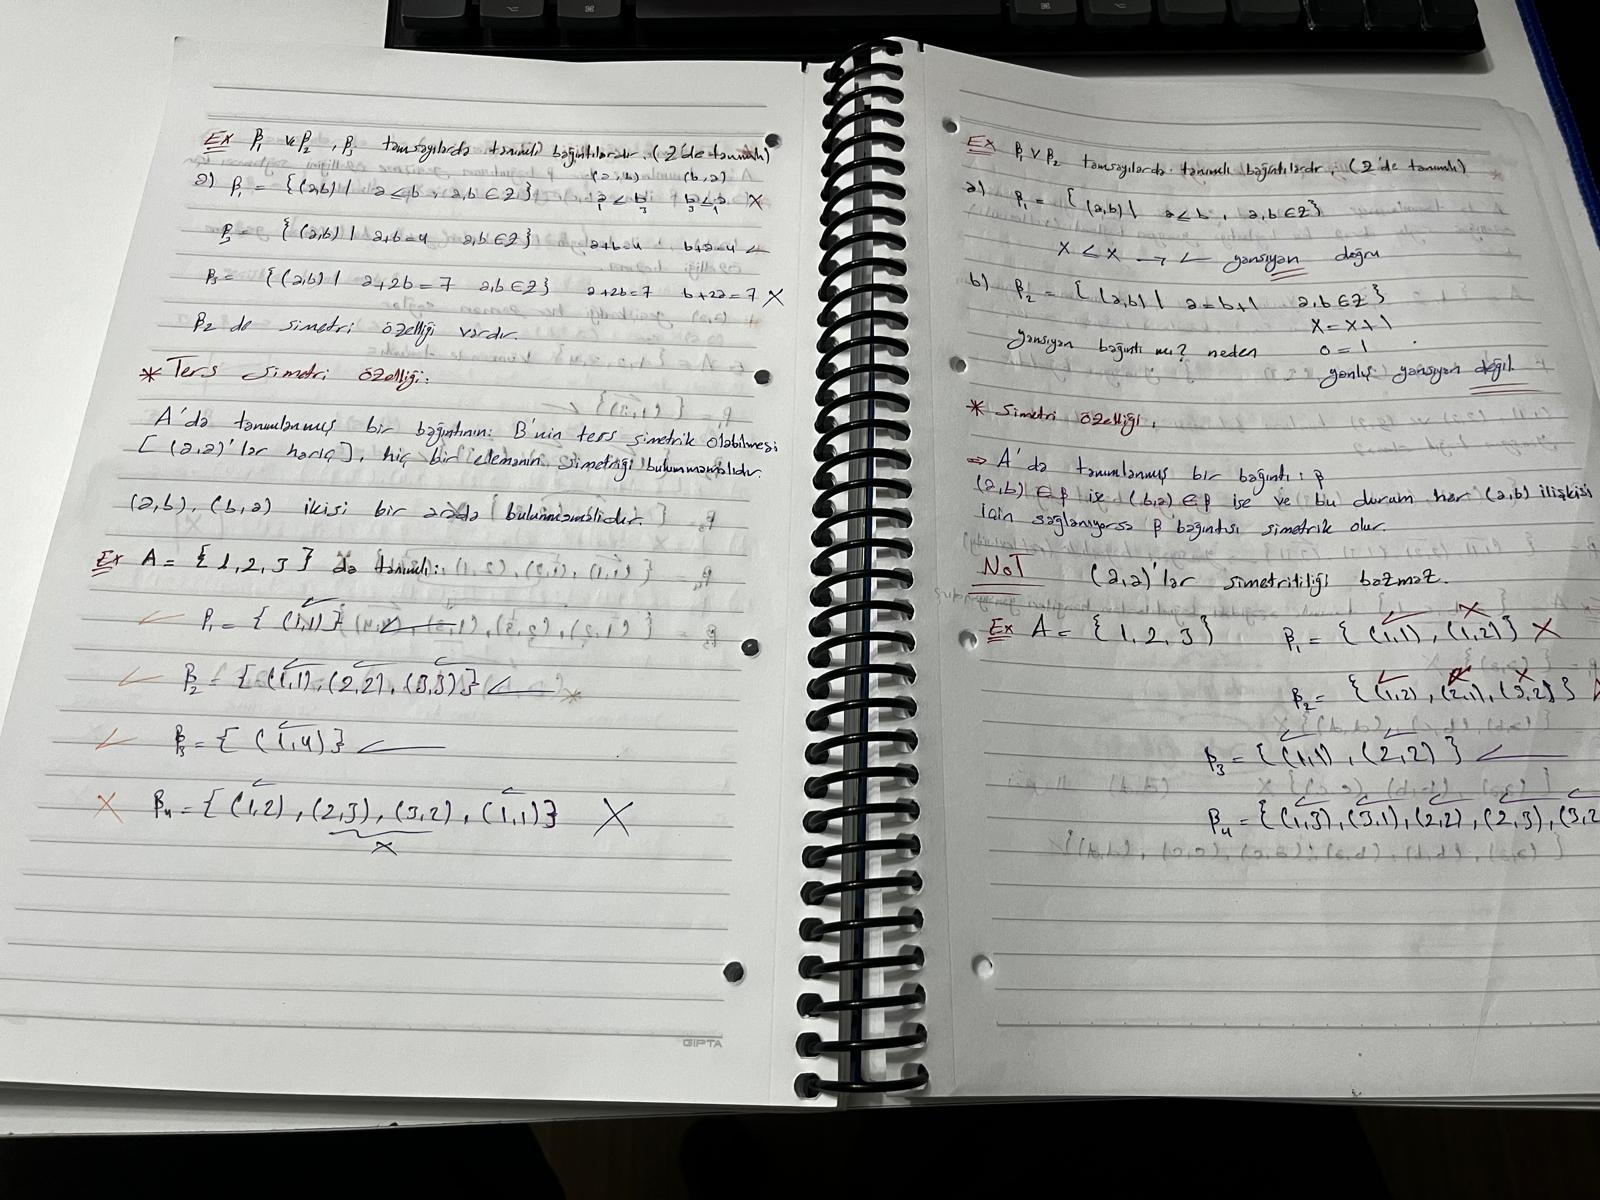 Ex β₁ ve β₂, β₃ tamsayılarda tanımlı bağıntılardır. (Z'de tanımlı)
(a,b) (b,a)
a) β₁ = {(a,b) | a≤b, a,b∈Z} a≤b b≤a X
1 3 3 1
β₂ = {(a,b) | a+b=4 a,b∈Z} a+b=4 b+a=4 ✓
β₃ = {(a,b) | a+2b=7 a,b∈Z} a+2b=7 b+2a=7 X
β₂ de simetri özelliği vardır.
* Ters simetri özelliği:
A'da tanımlanmış bir bağıntının: B'nin ters simetrik olabilmesi
[(a,a)'lar hariç], hiç bir elemanın simetriği bulunmamalıdır.
(a,b), (b,a) ikisi bir arada bulunmamalıdır.
Ex A = {1,2,3} da tanımlı:
✓ β₁ = {(1,1)} ✓
✓ β₂ = {(1,1), (2,2), (3,3)} ✓ *
✓ β₃ = {(1,4)} ✓
X β₄ = {(1,2), (2,3), (3,2), (1,1)} X
X
GIPTA
Ex β₁ v β₂ tamsayılarda tanımlı bağıntılardır. (Z'de tanımlı)
a) β₁ = {(a,b) | a≤b, a,b∈Z}
x≤x → ✓ yansıyan doğru
b) β₂ = {(a,b) | a=b+1 a,b∈Z}
x=x+1
yansıyan bağıntı mı? neden 0=1
yanlış yansıyan değil.
* Simetri özelliği.
⇒ A'da tanımlanmış bir bağıntı: β
(a,b)∈β ise (b,a)∈β ise ve bu durum her (a,b) ilişkisi
için sağlanıyorsa β bağıntısı simetrik olur.
NOT (a,a)'lar simetriliği bozmaz.
Ex A = {1,2,3} β₁ = {(1,1), (1,2)} X
β₂ = {(1,2), (2,1), (3,2)}
β₃ = {(1,1), (2,2)} ✓
β₄ = {(1,3), (3,1), (2,2), (2,3), (3,2